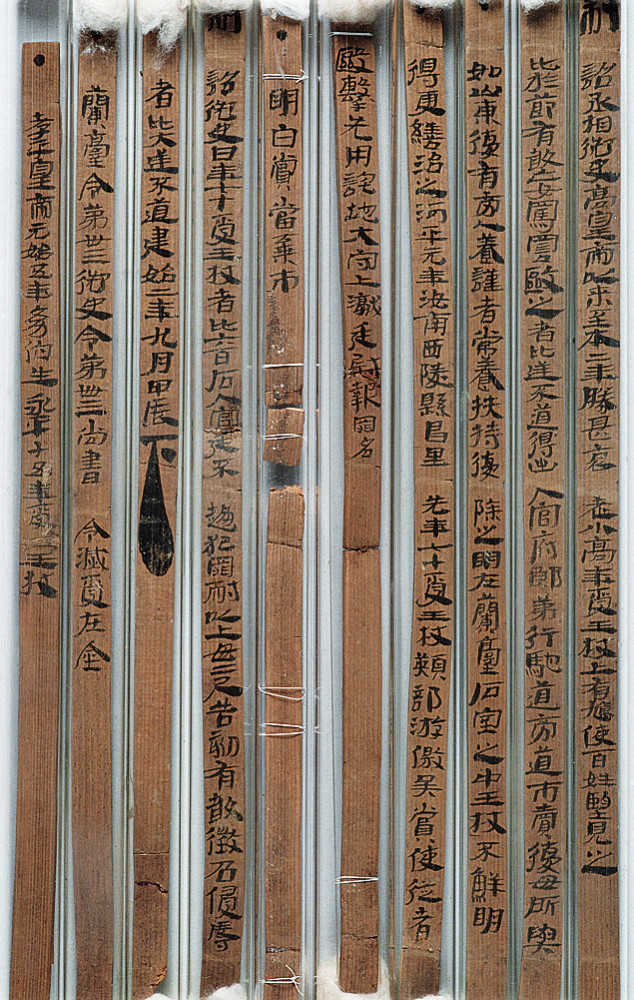 制詔丞相御史高皇帝以來至本二年勝甚哀老小高年受王杖上有鳩使百姓望見之
比於節有敢妄罵詈毆之者比逆不道得出入官府郎第行馳道旁道市賣復毋所與
如山東復有旁人養謹者常養扶持復除之明在蘭臺石室之中王杖不鮮明
得更繕治之河平元年汝南西陵縣昌里先年七十受王杖熲部游徼吳賞使從者
毆擊先用詫地大守上讞廷尉報罪名
明白賞當棄市
制詔御史曰年七十受王杖者比六百石入宮廷不趨犯罪耐以上毋二尺告劾有敢徵召侵辱
者比大逆不道建始二年九月甲辰下
蘭臺令第卅三御史令第卌三尚書令滅受在金
孝平皇帝元始五年幼伯生永平十五年受王杖